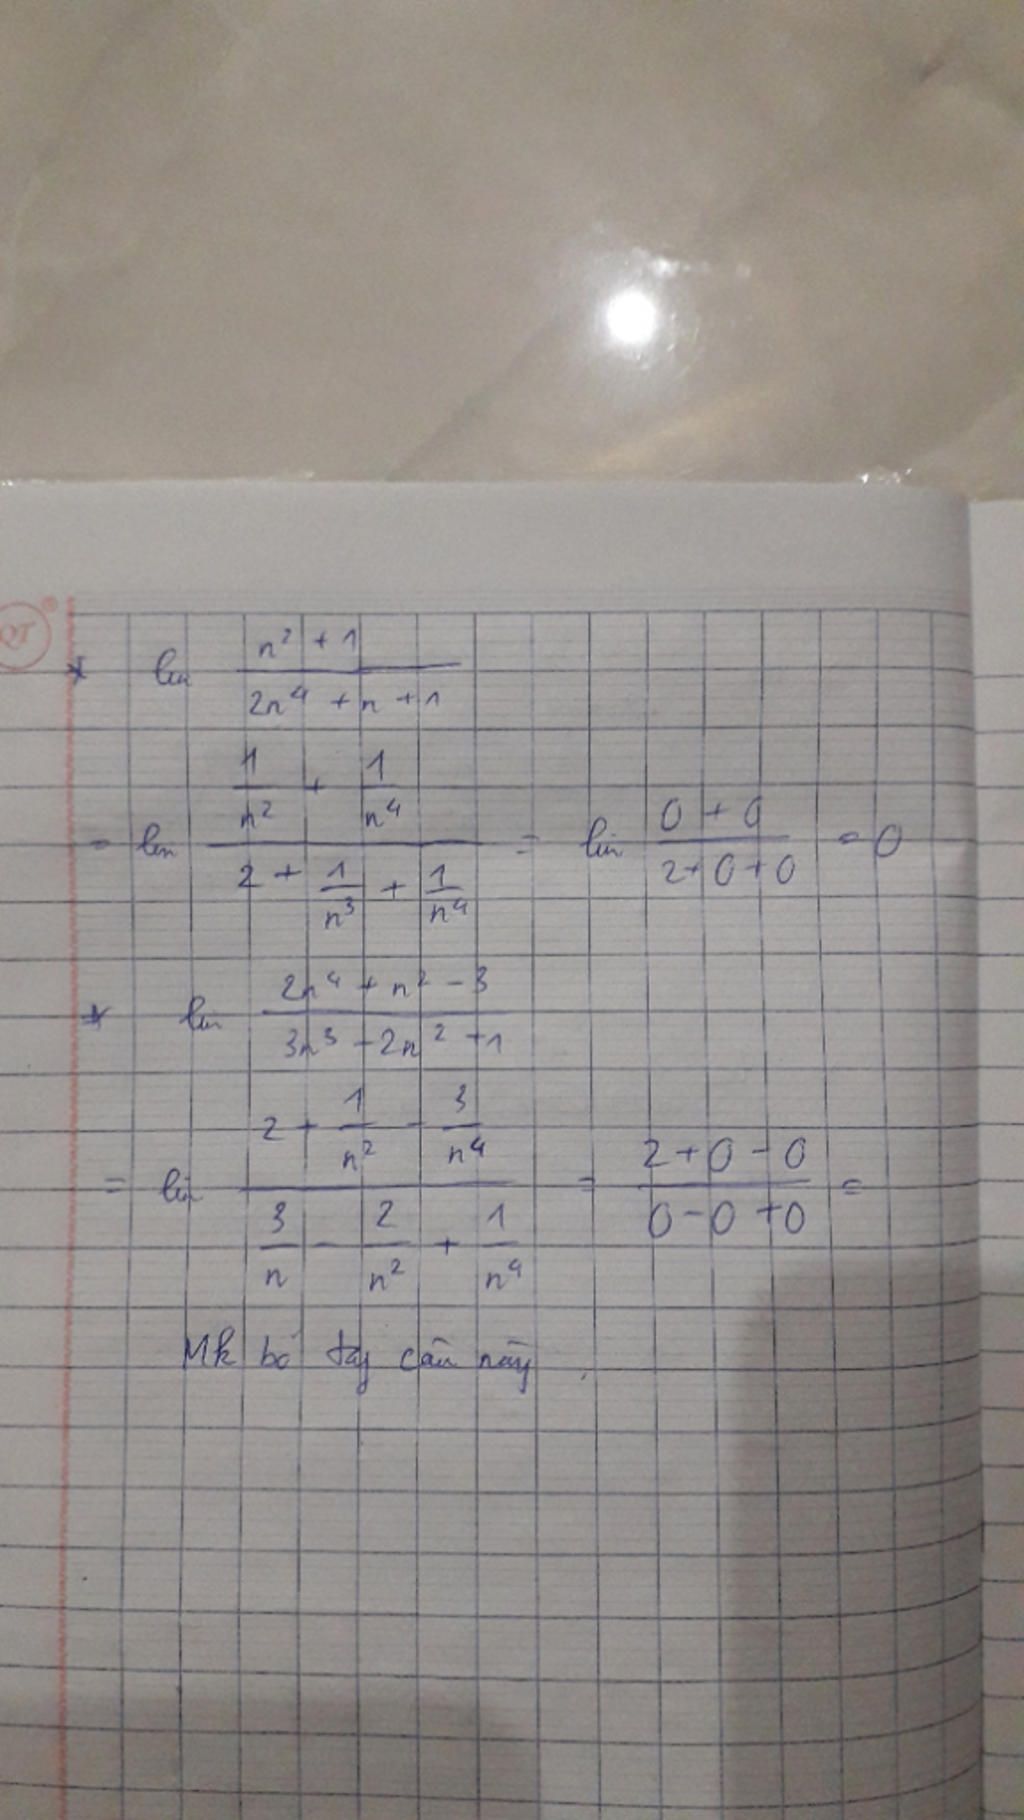 * lim (n² + 1)/(2n⁴ + n + 1)
= lim (1/n² + 1/n⁴)/(2 + 1/n³ + 1/n⁴) = lim (0 + 0)/(2+0+0) = 0
* lim (2n⁴ + n² - 3)/(3n³ - 2n² + 1)
= lim (2 + 1/n² - 3/n⁴)/(3/n - 2/n² + 1/n⁴) = (2+0-0)/(0-0+0) =
Mk bó tay câu này